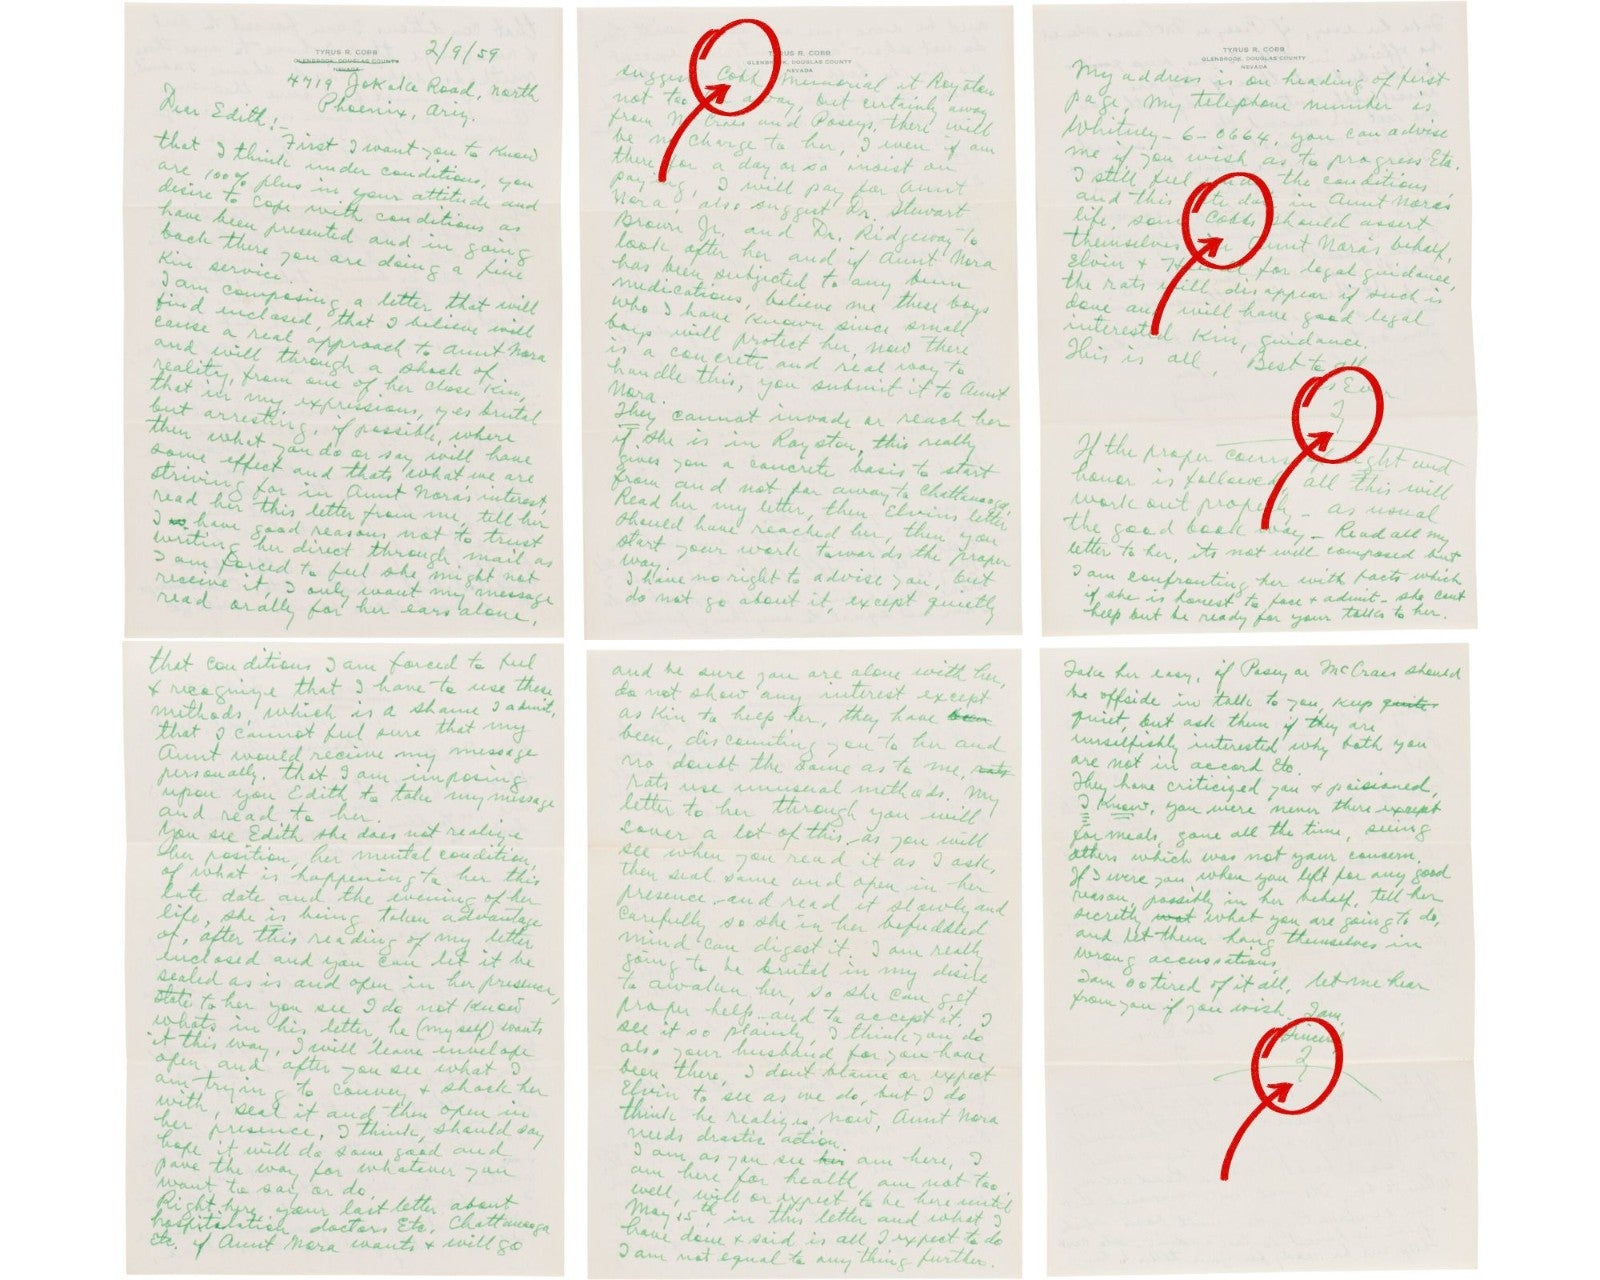 TYRUS R. COBB
GLENBROOK, DOUGLAS COUNTY
NEVADA
2/9/59
4719 Jokake Road, North
Phoenix, Ariz.
Dear Edith:-
First I want you to know
that I think under conditions, you
are 100% plus in your attitude and
desire to cope with conditions as
have been presented and in going
back there you are doing a fine
Kin service.
I am composing a letter that will
find enclosed, that I believe will
cause a real approach to Aunt Nora
and will through a shock of
reality, from one of her close Kin,
that in my expressions, yes brutal
but arresting, if possible, where
then what you do or say will have
some effect and thats what we are
striving for in Aunt Nora's interest,
read her this letter from me, tell her
I have good reasons not to trust
writing her direct through mail as
I am forced to feel she might not
receive it, I only want my message
read orally for her ears alone,
that conditions I am forced to feel
& recognize that I have to use these
methods, which is a shame I admit,
that I cannot feel sure that my
Aunt would receive my message
personally. that I am imposing
upon you Edith to take my message
and read to her.
You see Edith she does not realize
her position, her mental condition,
of what is happening to her this
late date and the evening of her
life, she is being taken advantage
of, after this reading of my letter
enclosed and you can let it be
sealed as is and open in her presence,
state to her you see I do not know
whats in his letter, he (myself) wants
it this way, I will leave envelope
open, and after you see what I
am trying to convey & shock her
with, seal it and then open in
her presence. I think, should say
hope it will do some good and
pave the way for whatever you
want to say or do.
Right here, your last letter about
hospitalation, doctors Etc. Chattanooga
Etc. if Aunt Nora wants & will go
TYRUS R. COBB
GLENBROOK, DOUGLAS COUNTY
NEVADA
suggest Cobb Memorial at Royston
not too away, but certainly away
from McCraes and Poseys, there will
be no charge to her, I even if am
there for a day or so insist on
paying, I will pay for Aunt
Nora, also suggest Dr. Stewart
Brown Jr. and Dr. Ridgeway to
look after her and if Aunt Nora
has been subjected to any
medications, believe me these boys
who I have known since small
boys will protect her, now there
is a concrete and real way to
handle this, you submit it to Aunt
Nora.
They cannot invade or reach her
if she is in Royston, this really
gives you a concrete basis to start
from and not far away to Chattanooga,
Read her my letter, then Elvins letter
should have reached her, then you
start your work towards the proper
way.
I have no right to advise you, but
do not go about it, except quietly
and be sure you are alone with her,
do not show any interest except
as Kin to help her, they have been
been, discounting you to her and
no doubt the same as to me, rats
rats use unusual methods. My
letter to her through you will
cover a lot of this, as you will
see when you read it as I ask,
then seal same and open in her
presence and read it slowly and
carefully so she in her befuddled
mind can digest it. I am really
going to be brutal in my desire
to awaken her, so she can get
proper help and to accept it. I
see it so plainly, I think you do
also your husband for you have
been there, I dont blame or expect
Elvin to see as we do, but I do
think he realizes, now, Aunt Nora
needs drastic action.
I am as you see am here, I
am here for health, am not too
well, will or expect to be here until
May 15th, in this letter and what I
have done & said is all I expect to do
I am not equal to anything further.
TYRUS R. COBB
GLENBROOK, DOUGLAS COUNTY
NEVADA
My address is on heading of first
page, my telephone number is
Whitney-6-0664, you can advise
me if you wish as to progress Etc.
I still feel the conditions
and this late date in Aunt Nora's
life, some Cobbs should assert
themselves in Aunt Nora's behalf,
Elvin & for legal guidance,
the rats will disappear if such is
done and will have good legal
interested Kin, guidance.
This is all, Best to all
As Ever
T
If the proper course, right and
honor is followed, all this will
work out properly - as usual
the good book way - Read all my
letter to her, its not well composed but
I am confronting her with facts which
if she is honest to face & admit - she cant
help but be ready for your talks to her.
Take her easy, if Posey or McCraes should
be offside in talk to you, keep quite
quiet, but ask them if they are
unselfishly interested why both you
are not in accord Etc.
They have criticized you & poisioned,
I know, you were never there except
for meals, gone all the time, seeing
others which was not your concern.
If I were you when you left for any good
reason, possibly in her behalf, tell her
secretly what you are going to do,
and let them hang themselves in
wrong accusations.
I am so tired of it all, let me hear
from you if you wish. I am,
Sincerely
T